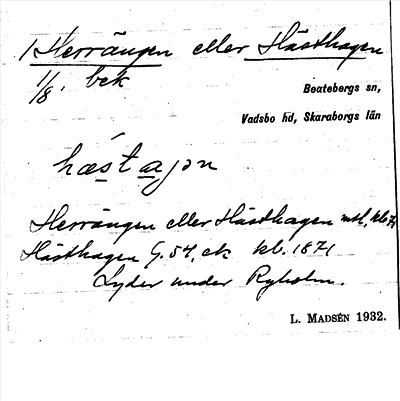 1 Herrängen eller Hästhagen
1/8. bek
Beatebergs sn,
Vadsbo hd, Skaraborgs län
hæstaȷən
Herrängen eller Hästhagen mtl, kb 71
Hästhagen G. 54, ek kb. 1871
Lyder under Ryholm.
L. MADSÉN 1932.